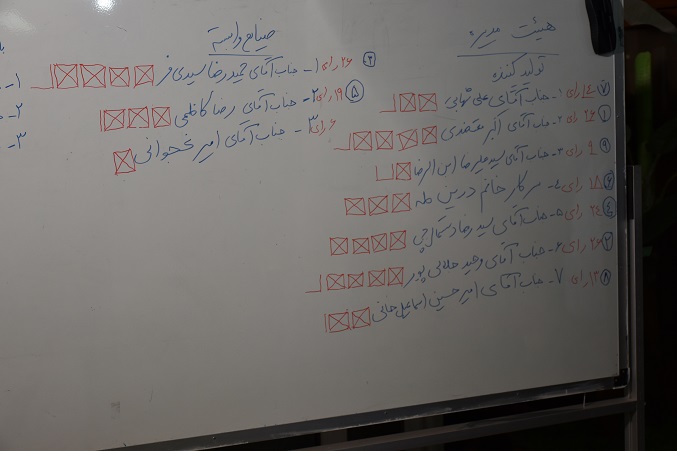 هیئت مدیره
تولید کننده
۷ رای ۱- جناب آقای علی
۱ ۲۶ رای ۲- جناب آقای اکبر مقتدری
۹ ۹ رای ۳- جناب آقای سید علیرضا ابن الرضا
۶ ۱۵ رای ۴- سرکار خانم درین مله
۴ ۲۰ رای ۵- جناب آقای سید رضا دستمال چی
۳ رای ۶- جناب آقای وحید جلالی پور
۸ ۱۲ رای ۷- جناب آقای امیر حسین اسماعیل خانی
صنایع وابسته
۲ ۲۶ رای ۱- جناب آقای حمیدرضا سیدی فر
۵ ۱۹ رای ۲- جناب آقای رضا کاظمی
۶ رای ۳- جناب آقای امیر نخجوانی
با
۱-
۲-
۳-